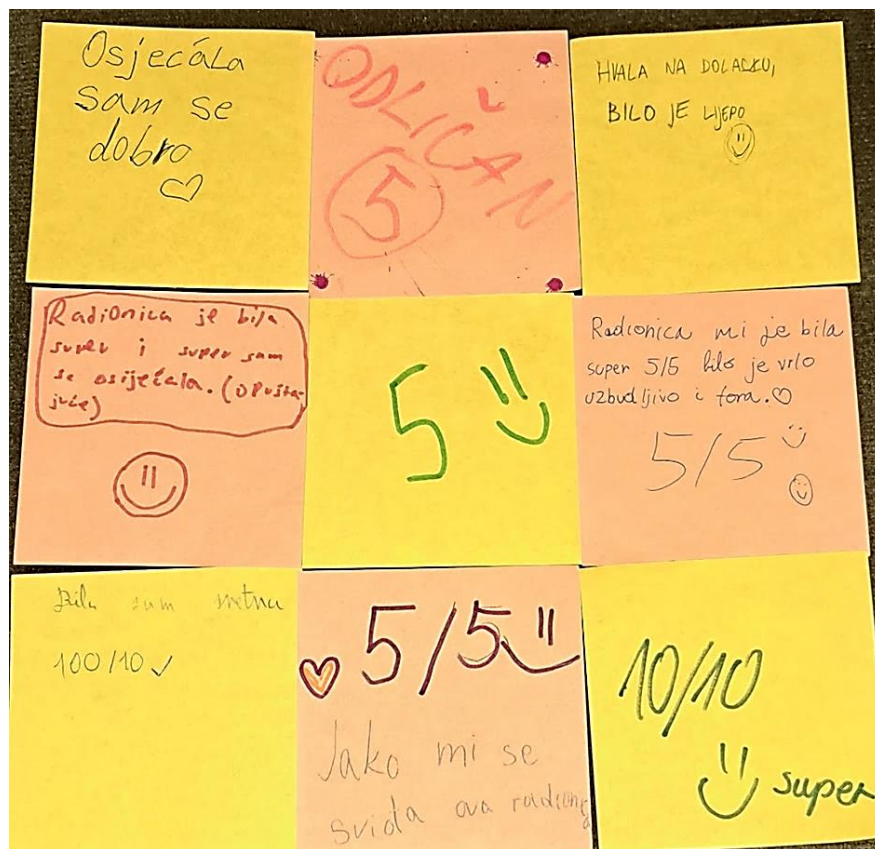 Osjećala
sam se
dobro
ODLIČAN
5
HVALA NA DOLASKU,
BILO JE LIJEPO
Radionica je bila
super i super sam
se osiječala. (opušta-
juće)
5
Radionica mi je bila
super 5/5 bilo je vrlo
uzbudljivo i fora.
5/5
Bila sam sretna
100/10
5/5
Jako mi se
sviđa ova radionica
10/10
super